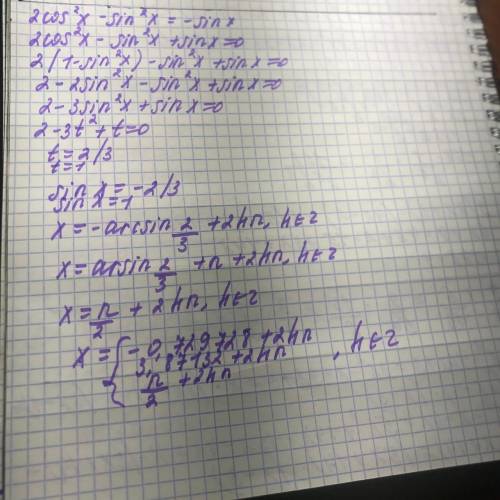 2cos²x - sin²x = -sin x
2cos²x - sin²x + sin x = 0
2(1-sin²x) - sin²x + sin x = 0
2 - 2sin²x - sin²x + sin x = 0
2 - 3sin²x + sin x = 0
2 - 3t² + t = 0
t = 2/3
t = 1
sin x = -2/3
sin x = 1
x = -arcsin 2/3 + 2πn, n∈z
x = arsin 2/3 + π + 2πn, n∈z
x = π/2 + 2πn, n∈z
x = { -0,729728 + 2πn
3,87132 + 2πn , n∈z
π/2 + 2πn